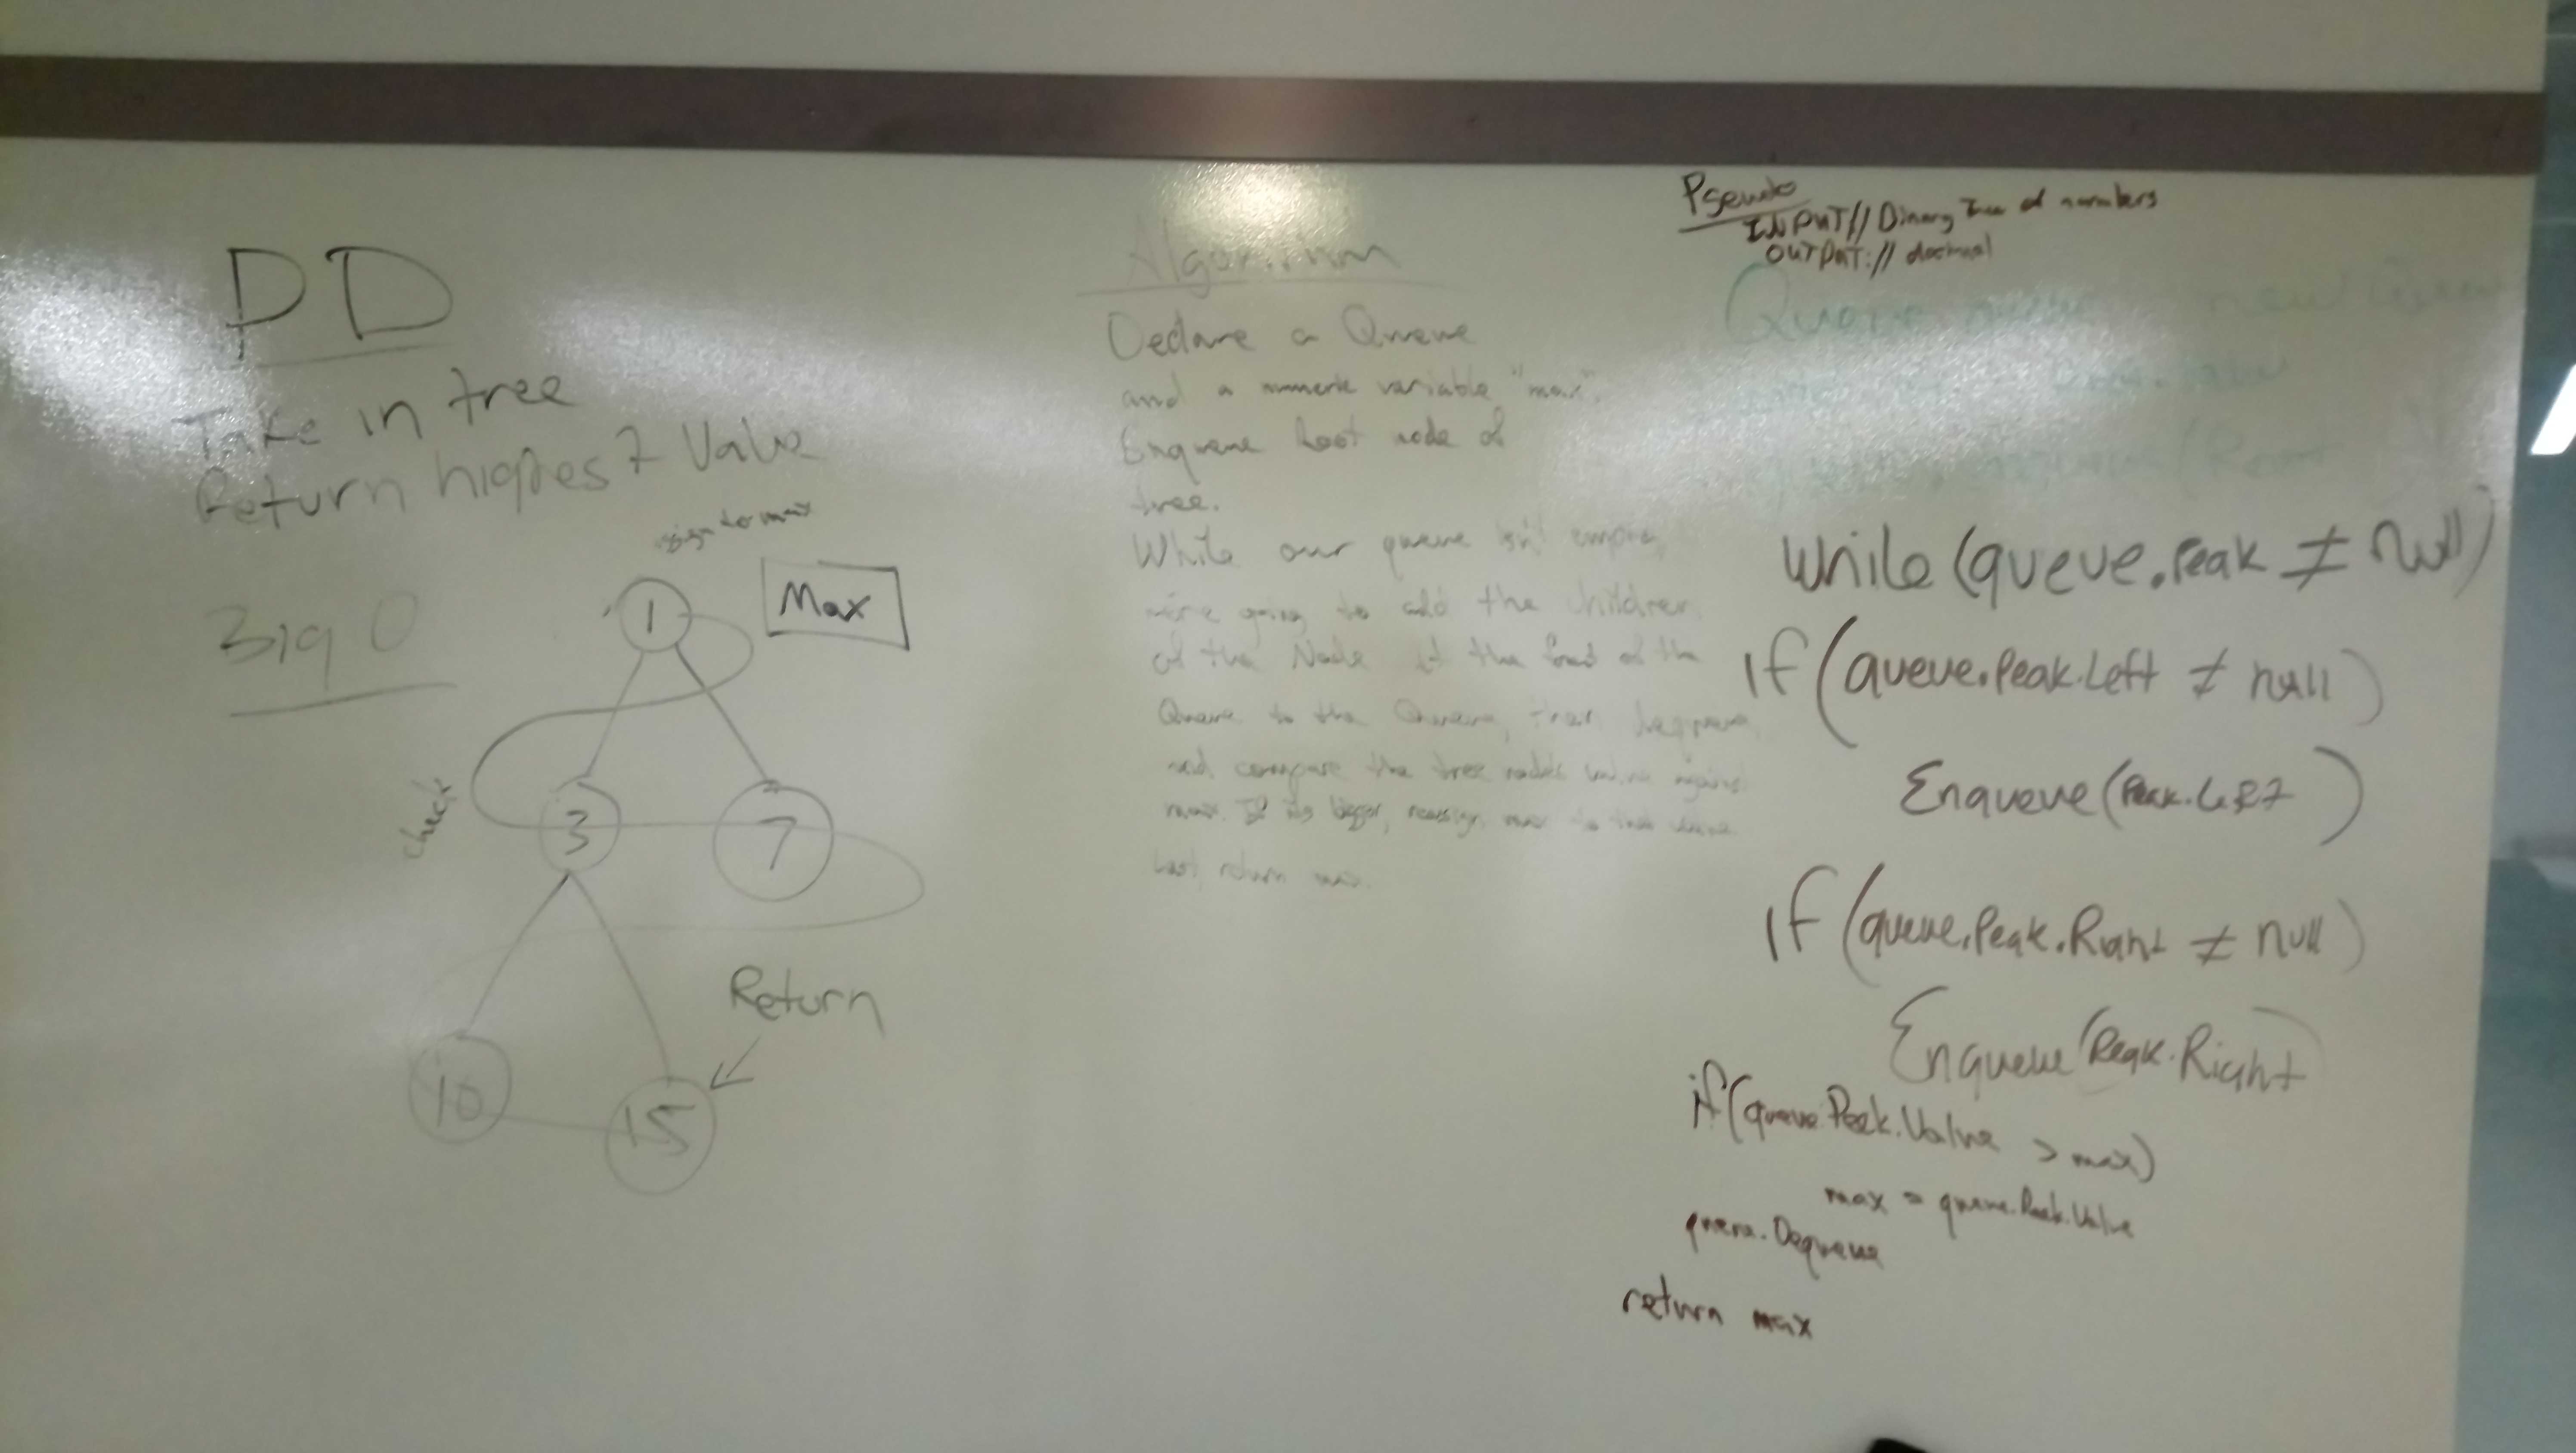 PD
Take in tree
Return highest Value
assign to max
Big O
Max
1
check
3
7
Return
10
15
Algorithm
Declare a Queue
and a numeric variable "max".
Enqueue Root node of
tree.
While our queue isn't empty,
we're going to add the children
of the Node at the front of the
Queue to the Queue, then
and compare the tree nodes value against
max. If its bigger, reassign max to that value
Last, return max.
Pseudo
INPUT// Binary Tree of numbers
OUTPUT:// decimal
Queue new Queue
Root
While (queue.Peak ≠ null)
if (queue.Peak.Left ≠ null)
Enqueue (Peak.Left)
if (queue.Peak.Right ≠ null)
Enqueue (Peak.Right
if (queue.Peek.Value > max)
max = queue.Peek.Value
queue.Dequeue
return max